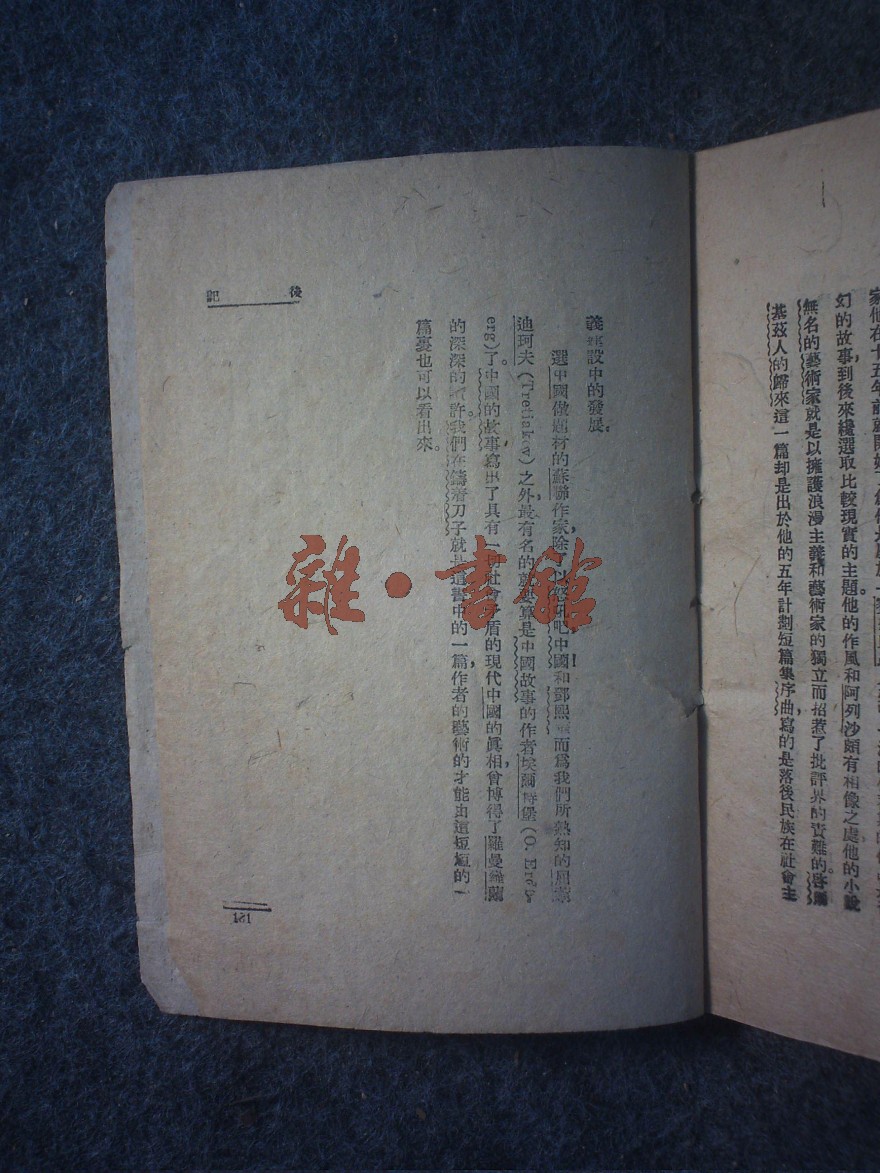 幻的故事，到後來纔選取比較現實的主題他的作風和阿列沙頗有相像之處他的小說
無名的藝術家就是以擁護浪漫主義和藝術家的獨立而招惹了批評界的責難的。
基茲人的歸來這一篇却是出於他的五年計劃短篇集序曲，寫的是落後民族在社會主
義建設中的發展。
選中國做題材的蘇聯作家，除了以怒吼吧中國！和鄧熙華而爲我們所熟知的
迪珂夫（Tretiakov）之外，最有名的就要算是中國故事的作者埃爾特堡（O. Erdb-
erg）了。中國的故事，寫出了具有一切社會矛盾的現代中國的眞相，會博得了羅曼羅蘭
的深深的讚許。我們在鑄着刀子就是這書中的一篇，作者的藝術的才能由這短短的一
篇裏也可以看出來。
後記
181
雜·書館